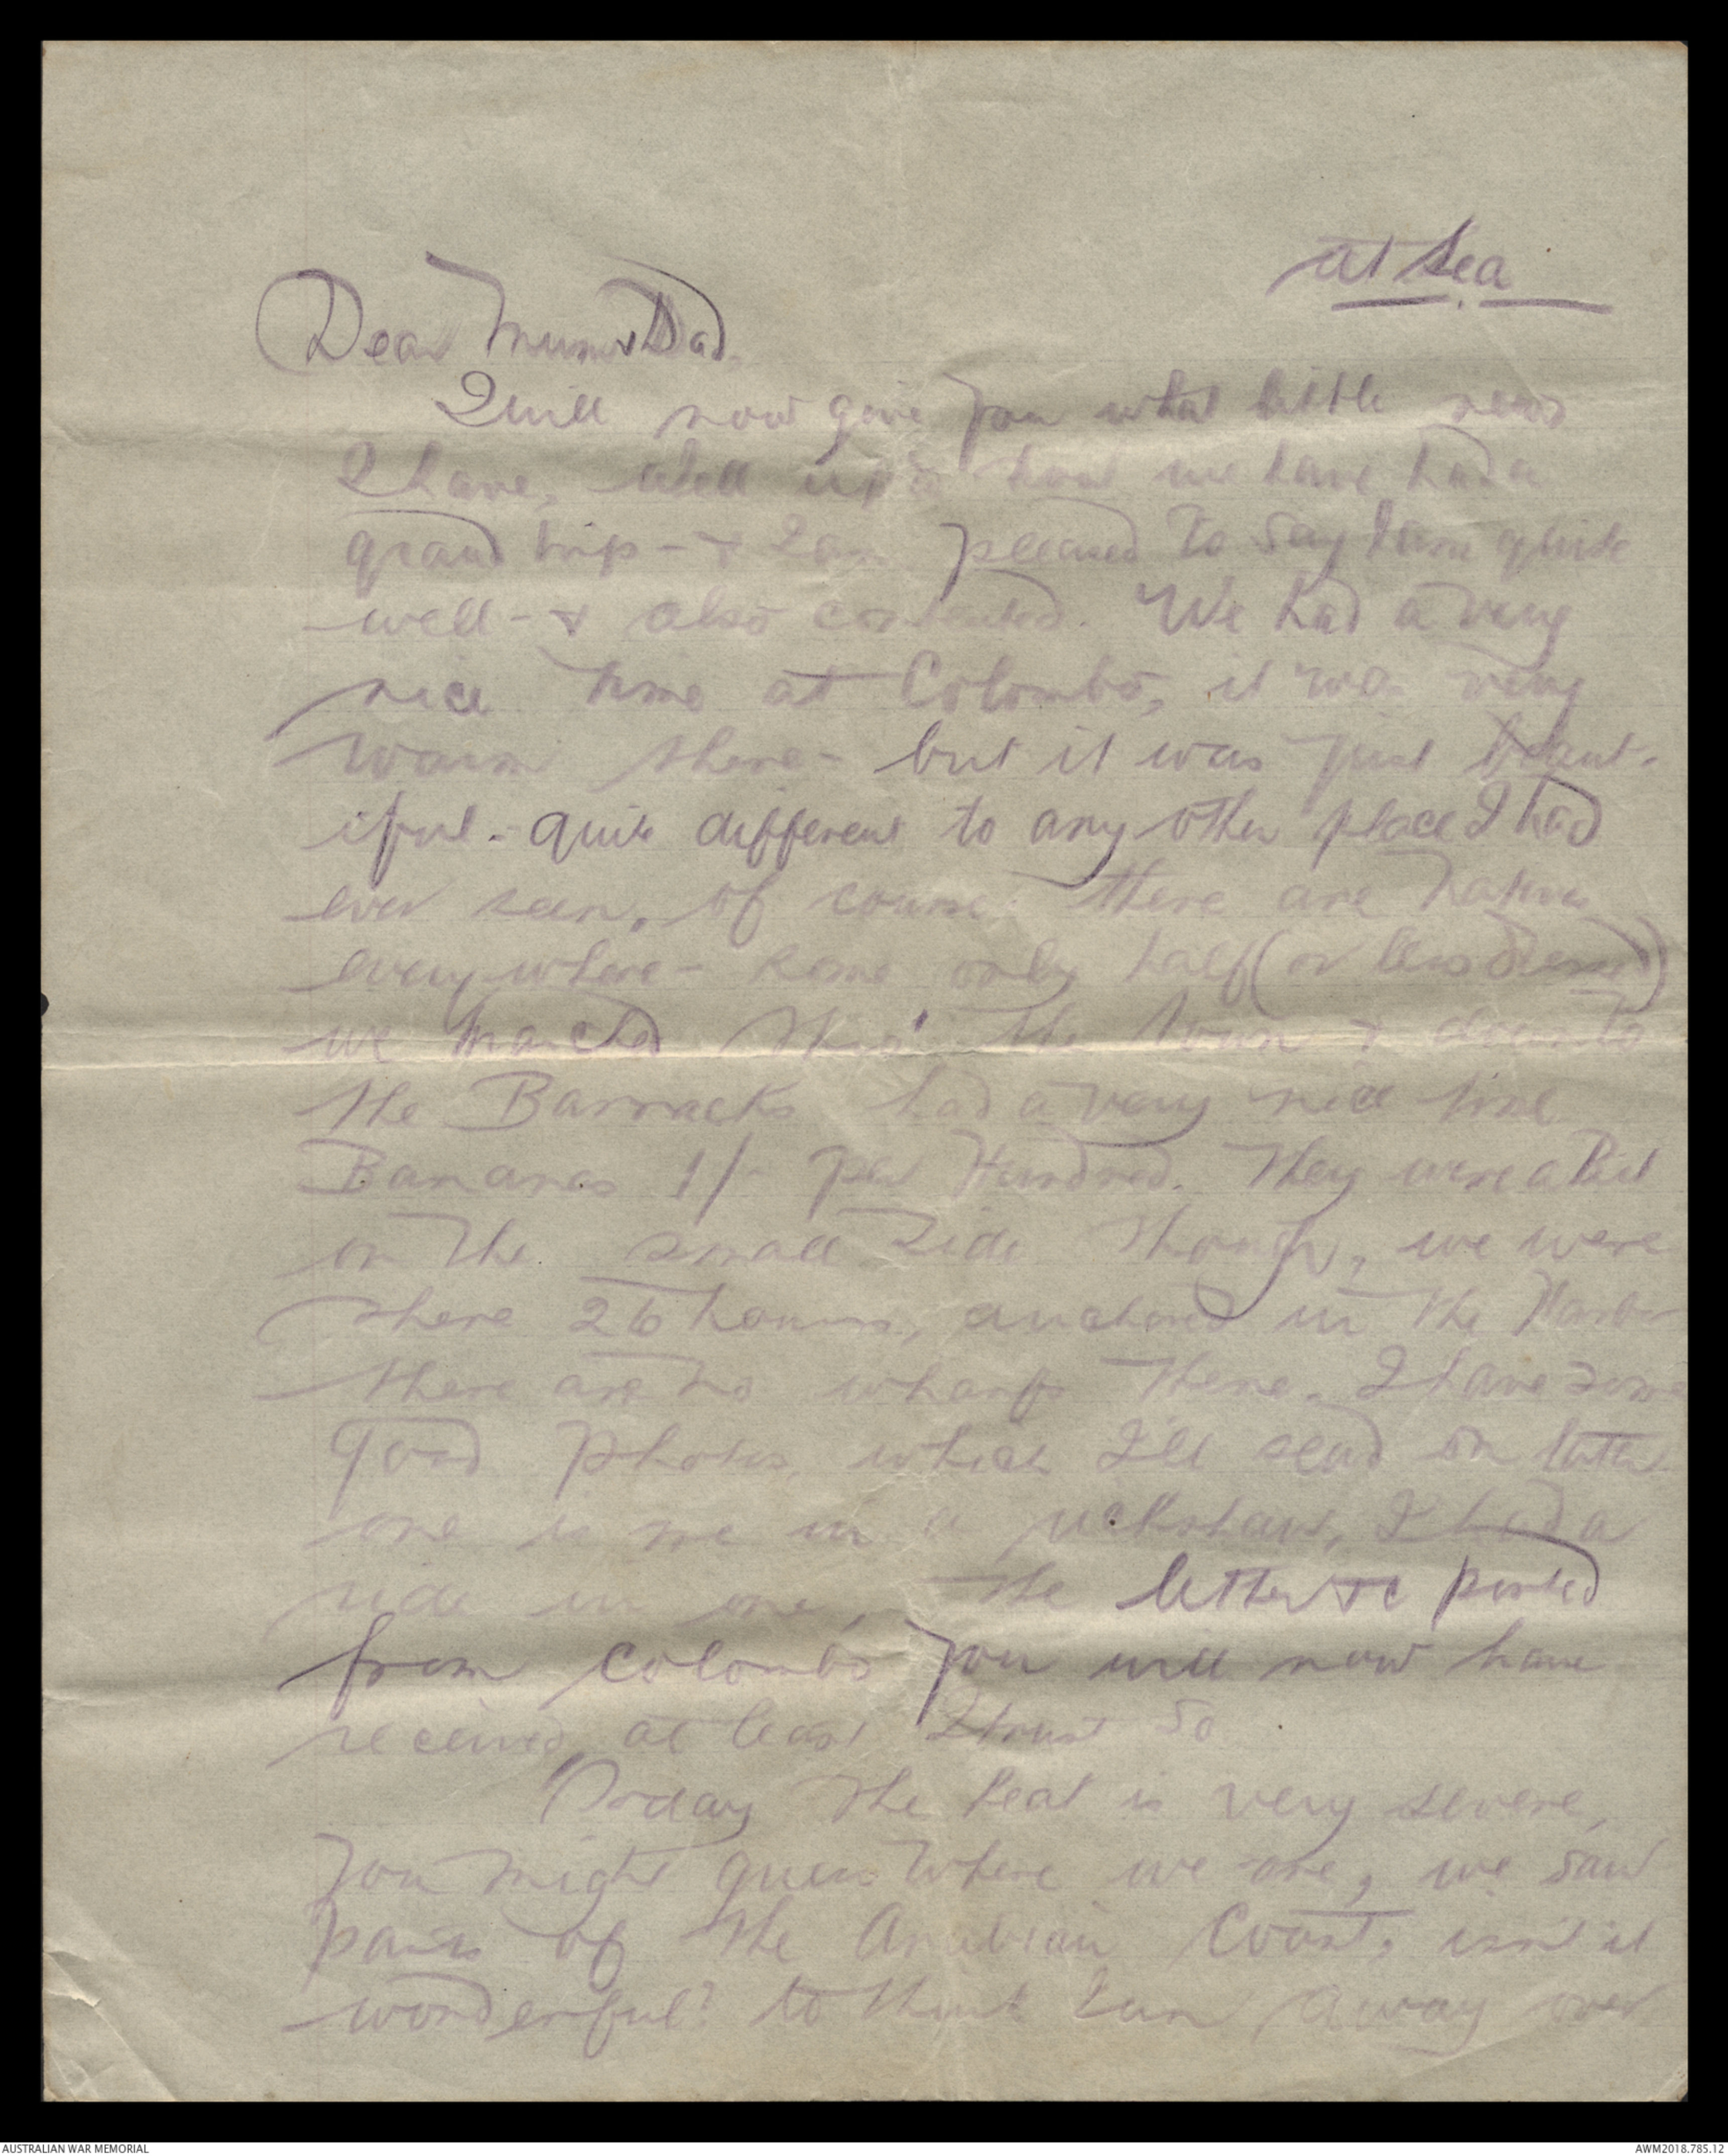 at Sea
Dear Mum & Dad.
I will now give you what little news
I have, well up to now we have had a
grand trip - & I am pleased to say I am quite
well - & also contented. We had a very
nice time at Colombo, it was very
warm there - but it was just beaut-
iful - quite different to any other place I had
ever seen, of course there are natives
everywhere - some only half (or less dressed)
we marched thro' the town & down to
the Barracks had a very nice time
Bananas 1/- per Hundred. They were a bit
on the small side though, we were
there 26 hours, anchored in the Harbor
there are no wharfs there. I have some
good photos, which I'll send on later
one is me in a rickshaw, I had a
ride in one, the letter &c posted
from Colombo you will now have
received at least I trust so
Today the heat is very severe,
you might guess where we are, we saw
parts of the Arabian Coast, isn't it
wonderful? to think I am away over
AUSTRALIAN WAR MEMORIAL
AWM2018.785.12